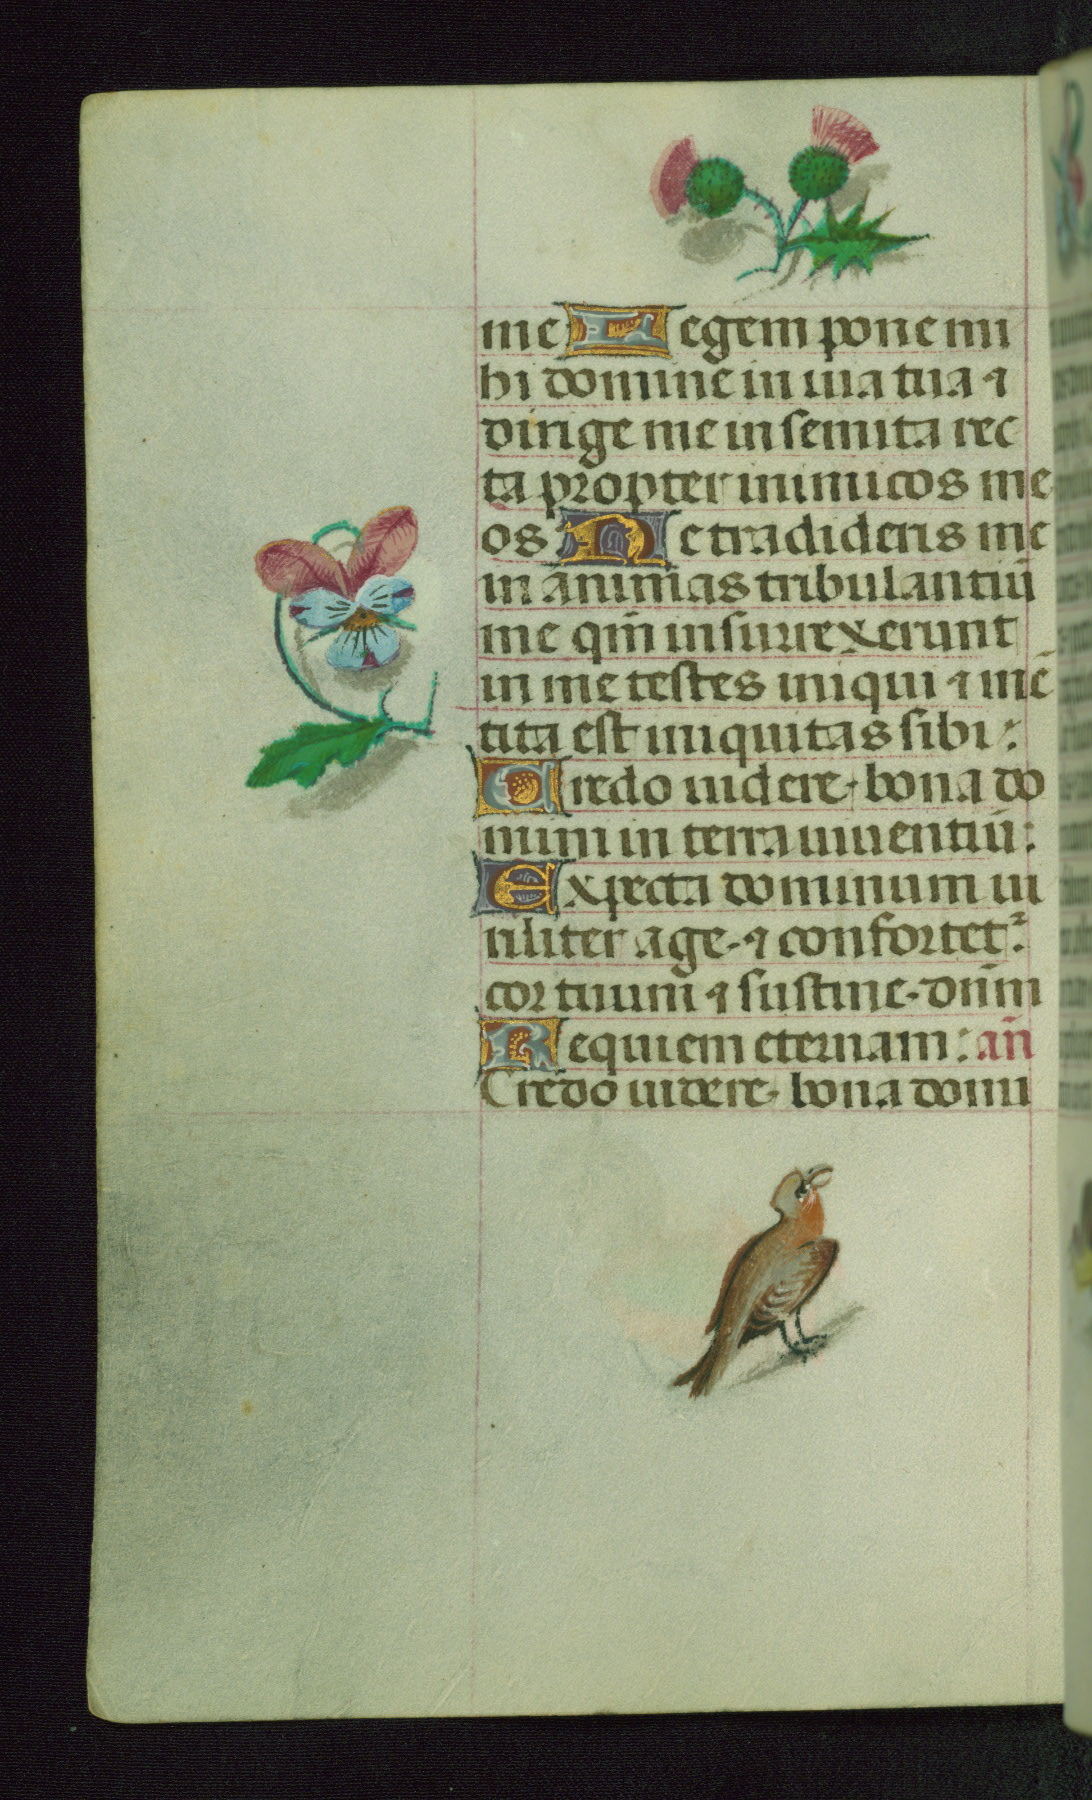 me Legem pone mi
hi domine in uia tua ⁊
dirige me in semita rec
ta propter inimicos me
os Ne tradideris me
in animas tribulantiū
me qm̄ insurrexerunt
in me testes iniqui ⁊ mē
tita est iniquitas sibi:
Credo uidere bona do
mini in terra uiuentiū:
Expecta dominum ui
riliter age ⁊ confortet᷑
cor tuum ⁊ sustine dn̄m
Requiem eternam: an̄
Credo uidere bona domi